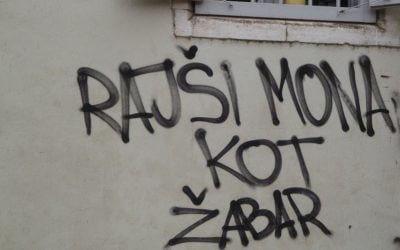 RAJŠI MONA,
KOT
ŽABAR